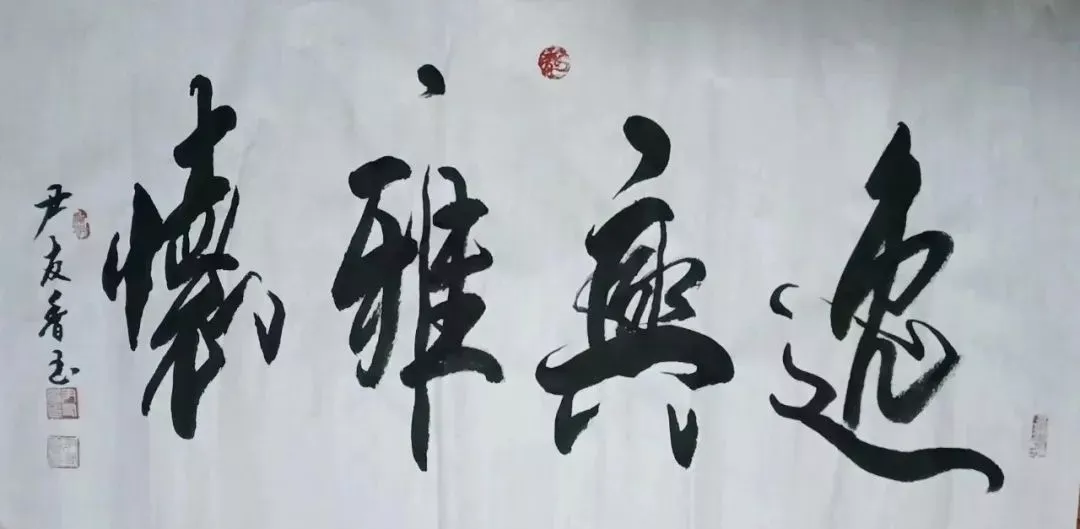 逸興雅懷
尹友香書